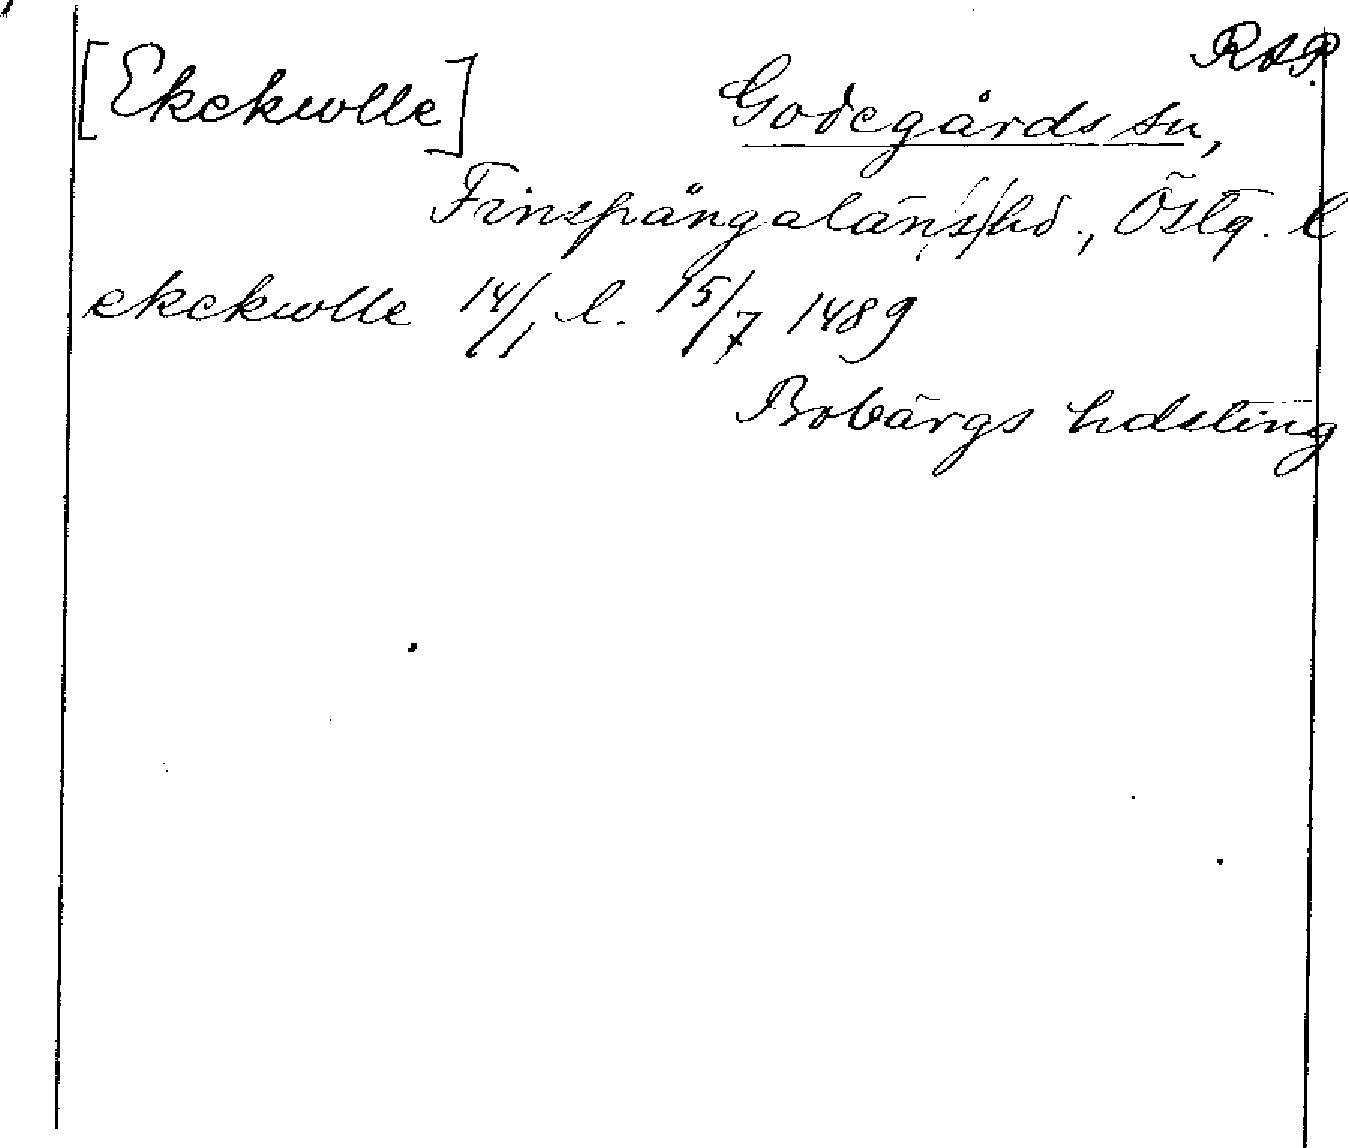 RAP.
[Ekekwlle] Godegårds sn,
Finspångalän/s/hd., Östg. l
ekekwlle 14/1 l. 15/7 1489
Bobärgs hdsting